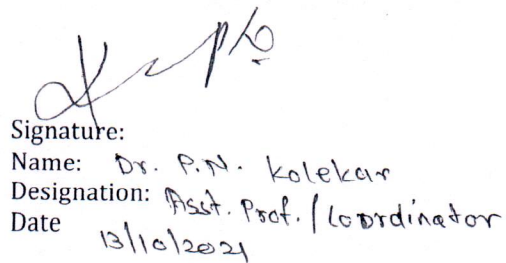 Signature:
Name: Dr. P.N. Kolekar
Designation: Asst. Prof. / Coordinator
Date
13/10/2021